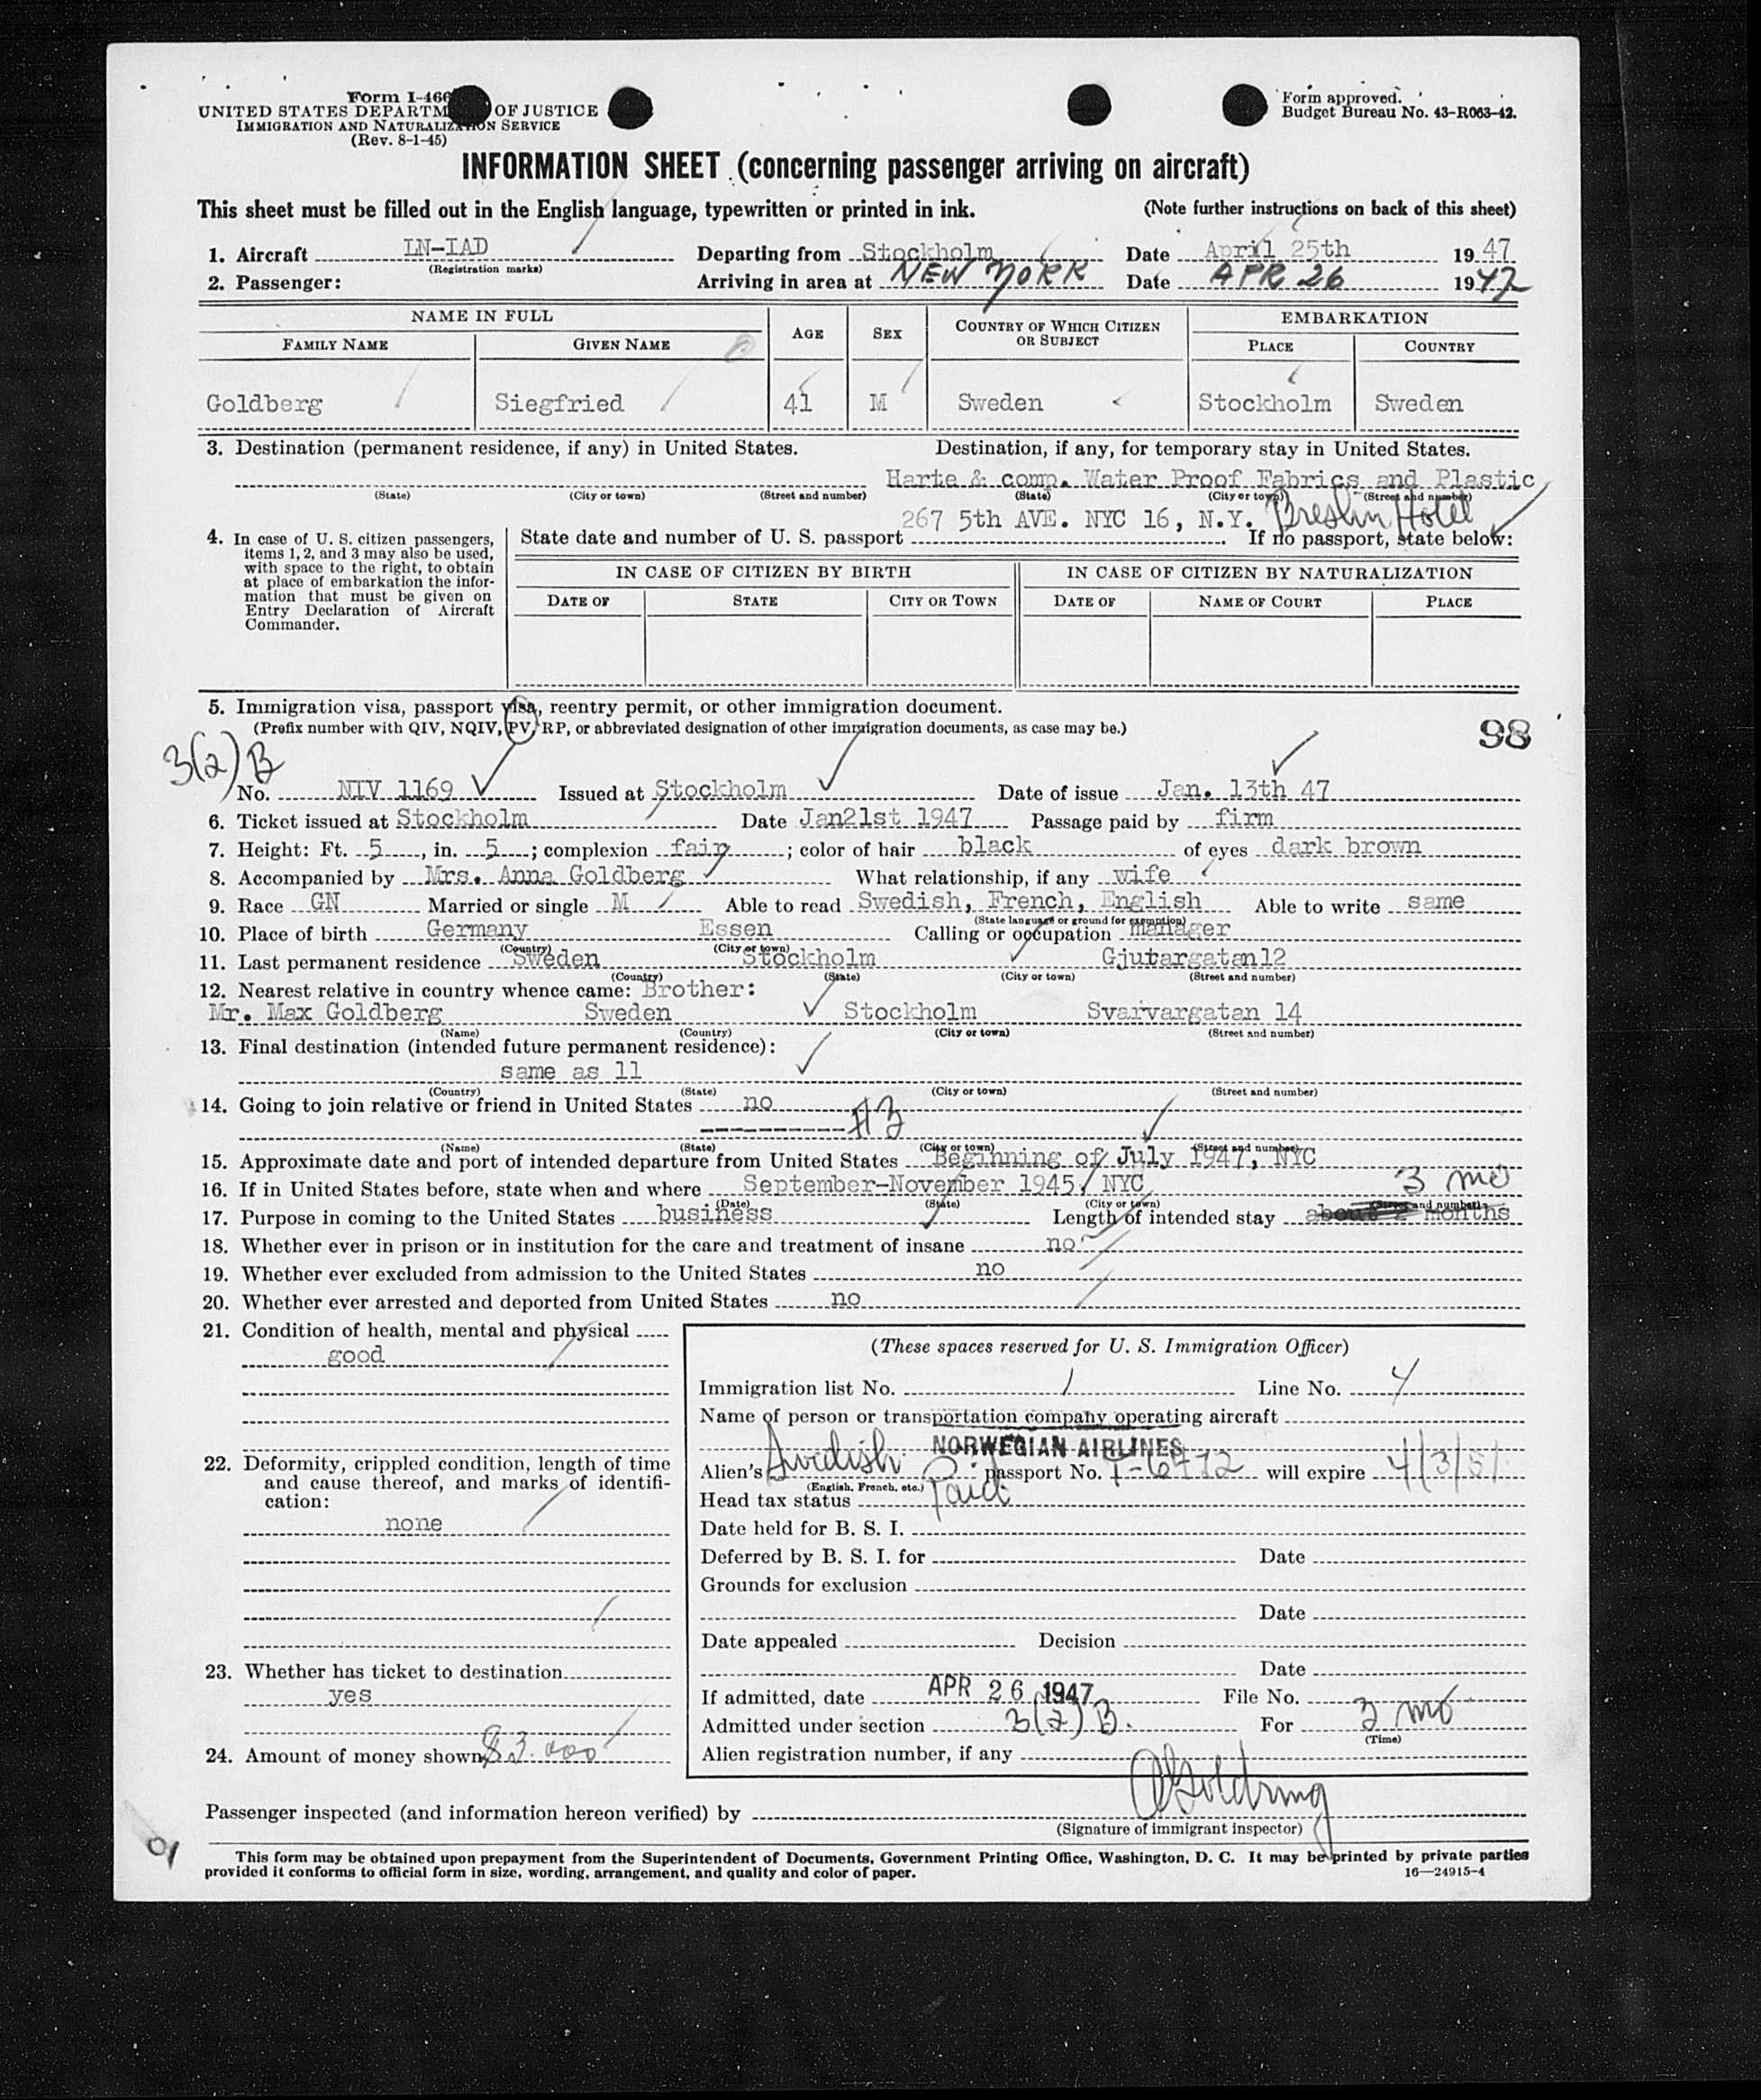 Form I-466
UNITED STATES DEPARTM OF JUSTICE
IMMIGRATION AND NATURALIZATION SERVICE
(Rev. 8-1-45)
Form approved.
Budget Bureau No. 43-R063-42.
INFORMATION SHEET (concerning passenger arriving on aircraft)
This sheet must be filled out in the English language, typewritten or printed in ink. (Note further instructions on back of this sheet)
1. Aircraft LN-IAD Departing from Stockholm Date April 25th 1947
(Registration marks)
2. Passenger: Arriving in area at NEW YORK Date APR 26 1947
NAME IN FULL AGE SEX COUNTRY OF WHICH CITIZEN OR SUBJECT EMBARKATION
FAMILY NAME GIVEN NAME PLACE COUNTRY
Goldberg Siegfried 41 M Sweden Stockholm Sweden
3. Destination (permanent residence, if any) in United States. Destination, if any, for temporary stay in United States.
Harte & comp. Water Proof Fabrics and Plastic
(State) (City or town) (Street and number) (State) (City or town) (Street and number)
267 5th AVE. NYC 16, N.Y. Breslin Hotel
4. In case of U. S. citizen passengers, items 1, 2, and 3 may also be used, with space to the right, to obtain at place of embarkation the information that must be given on Entry Declaration of Aircraft Commander.
State date and number of U. S. passport If no passport, state below:
IN CASE OF CITIZEN BY BIRTH IN CASE OF CITIZEN BY NATURALIZATION
DATE OF STATE CITY OR TOWN DATE OF NAME OF COURT PLACE
5. Immigration visa, passport visa, reentry permit, or other immigration document.
(Prefix number with QIV, NQIV, PV, RP, or abbreviated designation of other immigration documents, as case may be.)
98
3(2)B
No. NIV 1169 Issued at Stockholm Date of issue Jan. 13th 47
6. Ticket issued at Stockholm Date Jan21st 1947 Passage paid by firm
7. Height: Ft. 5, in. 5; complexion fair; color of hair black of eyes dark brown
8. Accompanied by Mrs. Anna Goldberg What relationship, if any wife
9. Race GN Married or single M Able to read Swedish, French, English Able to write same
(State language or ground for exemption)
10. Place of birth Germany Essen Calling or occupation manager
(Country) (City or town)
11. Last permanent residence Sweden Stockholm Gjutargatan12
(Country) (State) (City or town) (Street and number)
12. Nearest relative in country whence came: Brother:
Mr. Max Goldberg Sweden Stockholm Svarvargatan 14
(Name) (Country) (City or town) (Street and number)
13. Final destination (intended future permanent residence):
same as 11
(Country) (State) (City or town) (Street and number)
14. Going to join relative or friend in United States no
#3
(Name) (State) (City or town) (Street and number)
15. Approximate date and port of intended departure from United States Beginning of July 1947, NYC
16. If in United States before, state when and where September-November 1945, NYC 3 mo
(Date) (State) (City or town) (Street and number)
17. Purpose in coming to the United States business Length of intended stay about 2 months
18. Whether ever in prison or in institution for the care and treatment of insane no
19. Whether ever excluded from admission to the United States no
20. Whether ever arrested and deported from United States no
21. Condition of health, mental and physical
good
22. Deformity, crippled condition, length of time and cause thereof, and marks of identification:
none
23. Whether has ticket to destination
yes
24. Amount of money shown $3.000
(These spaces reserved for U. S. Immigration Officer)
Immigration list No. 1 Line No. 4
Name of person or transportation company operating aircraft
NORWEGIAN AIRLINES
Alien's Swedish passport No. will expire 4/3/51
(English, French, etc.)
Head tax status Paid
Date held for B. S. I.
Deferred by B. S. I. for Date
Grounds for exclusion
Date
Date appealed Decision
Date
If admitted, date APR 26 1947 File No.
Admitted under section 3(2)B. For 3 mo
(Time)
Alien registration number, if any
Passenger inspected (and information hereon verified) by
(Signature of immigrant inspector)
This form may be obtained upon prepayment from the Superintendent of Documents, Government Printing Office, Washington, D. C. It may be printed by private parties
provided it conforms to official form in size, wording, arrangement, and quality and color of paper. 16—24915-4